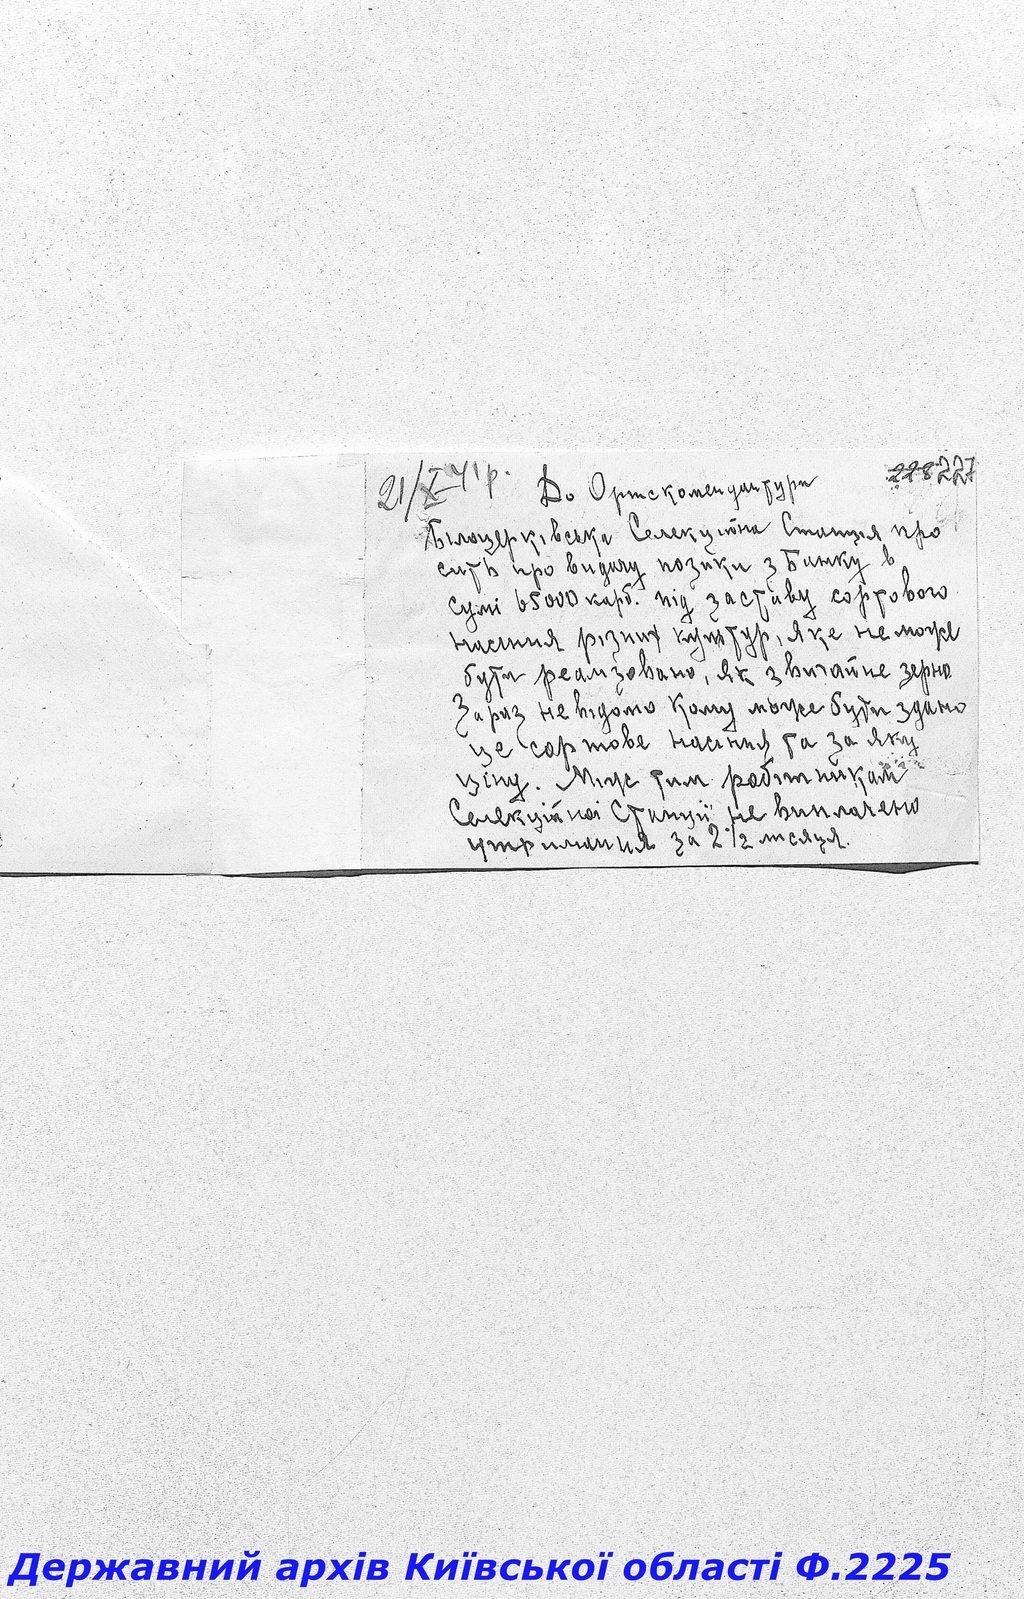 21/X 41 р.
228 227
До Орткомендантури
Білоцерківська Селекційна Станція про
сить про видачу позики з Банку в
сумі 65000 карб. під заставу сортового
насіння різних культур, яке не може
бути реалізовано, як звичайне зерно
Зараз невідомо кому може бути здано
це сортове насіння та за яку
ціну. Між тим робітникам
Селекційної Станції не виплачено
утримання за 2 1/2 місяця.
Державний архів Київської області Ф.2225